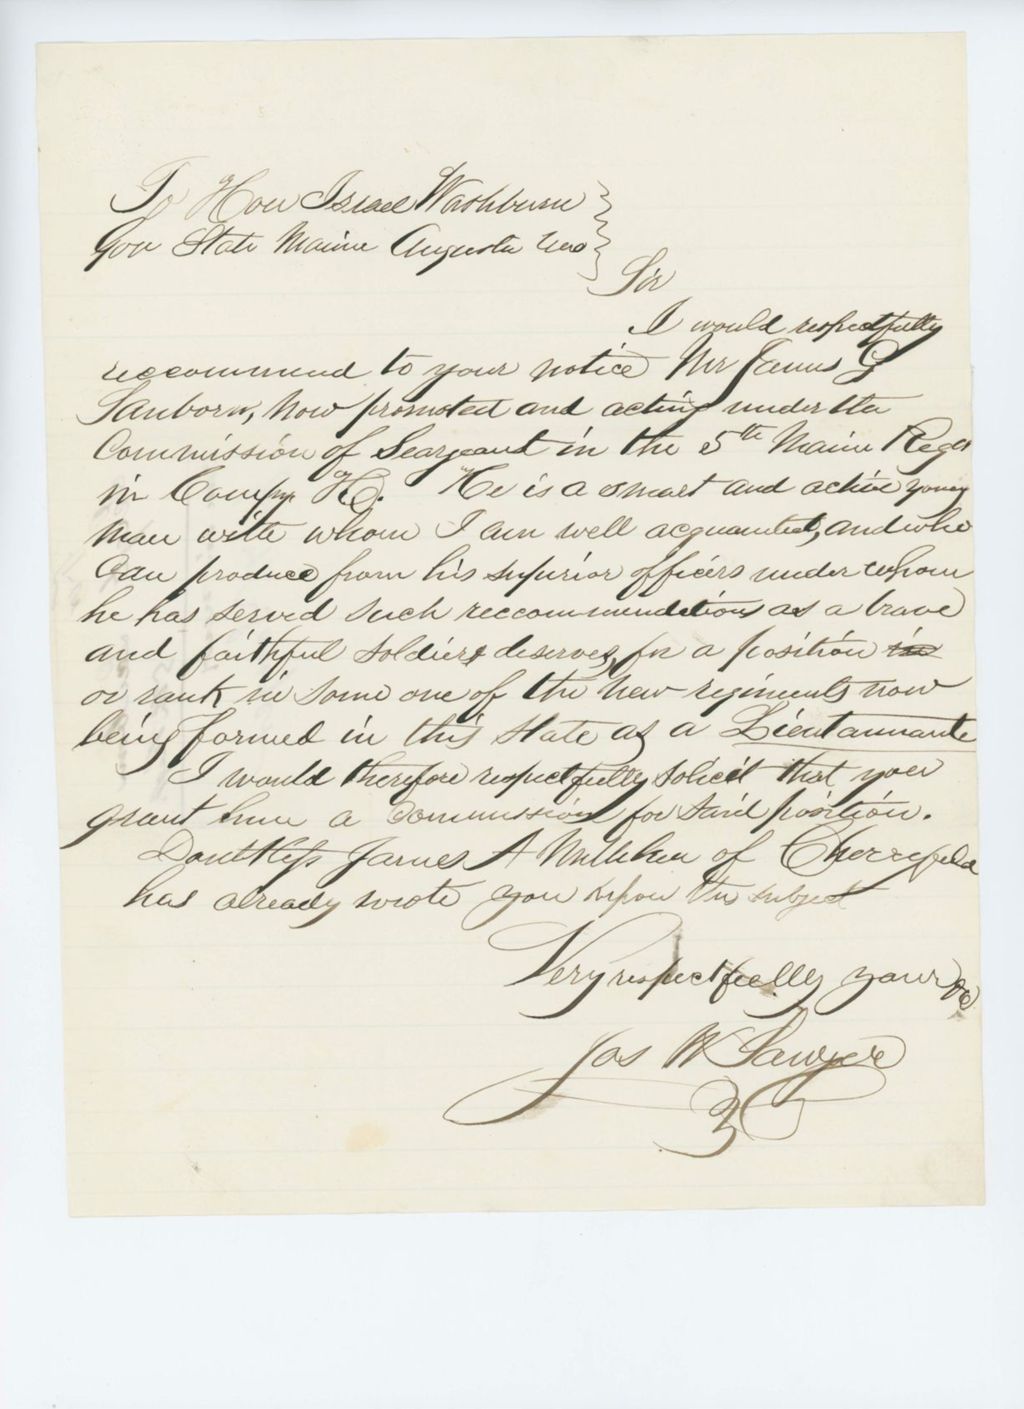 To Hon Israel Washburn
Gov State Maine Augusta Me
Sir
I would respectfully
reccommend to your notice Mr James G
Sanborn, now promoted and acting under the
Commission of Seargeant in the 5th Maine Regt
in Compy H. He is a smart and active young
man with whom I am well acquainted, and who
Can produce from his superior officers under whom
he has served such reccommendations as a brave
and faithful soldier deserves, for a position in
or rank in some one of the new regiments now
being formed in this State as a Lieutannante
I would therefore respectfully solicit that you
grant him a commission for said position.
Doubtless James A Milliken of Cherryfield
has already wrote you upon this subject
Very respectfully yours &c
Jos W Sawyer